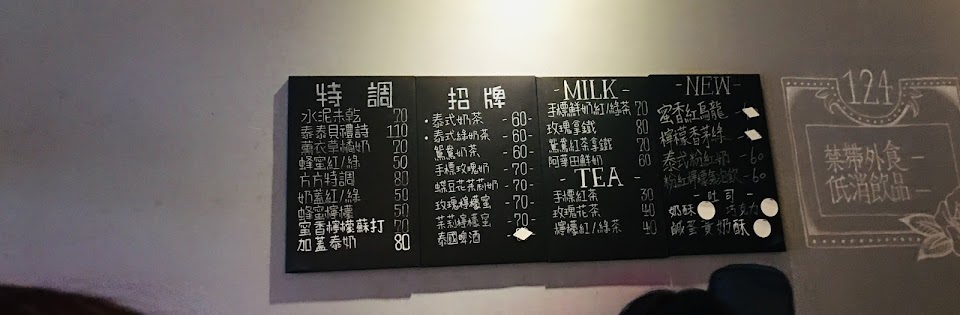 特調
水泥未乾 70
泰泰貝禮詩 110
薰衣草橘奶 70
蜂蜜紅/綠 50
方方特調 80
奶蓋紅/綠 50
蜂蜜檸檬 50
蜜香檸檬蘇打 70
加蓋泰奶 80
招牌
·泰式奶茶 -60-
·泰式綠奶茶 -60-
鴛鴦奶茶 -60-
手標玫瑰奶 -70-
蝶豆花茶萴奶 -70-
玫瑰檸檬蜜 -70-
茉莉檸檬蜜 -70-
泰國啤酒 -
-MILK-
手標鮮奶紅/綠茶 70
玫瑰拿鐵 80
鴛鴦紅茶拿鐵 70
阿華田鮮奶 60
-TEA-
手標紅茶 30
玫瑰花茶 40
檸檬紅/綠茶 40
-NEW-
蜜香紅烏龍 -
檸檬香茅綠 -
泰式粉紅奶 -60
粉紅檸檬氣泡飲 -60
吐司
奶酥 巧克力
鹹蛋黃奶酥
124
禁帶外食-
低消飲品-